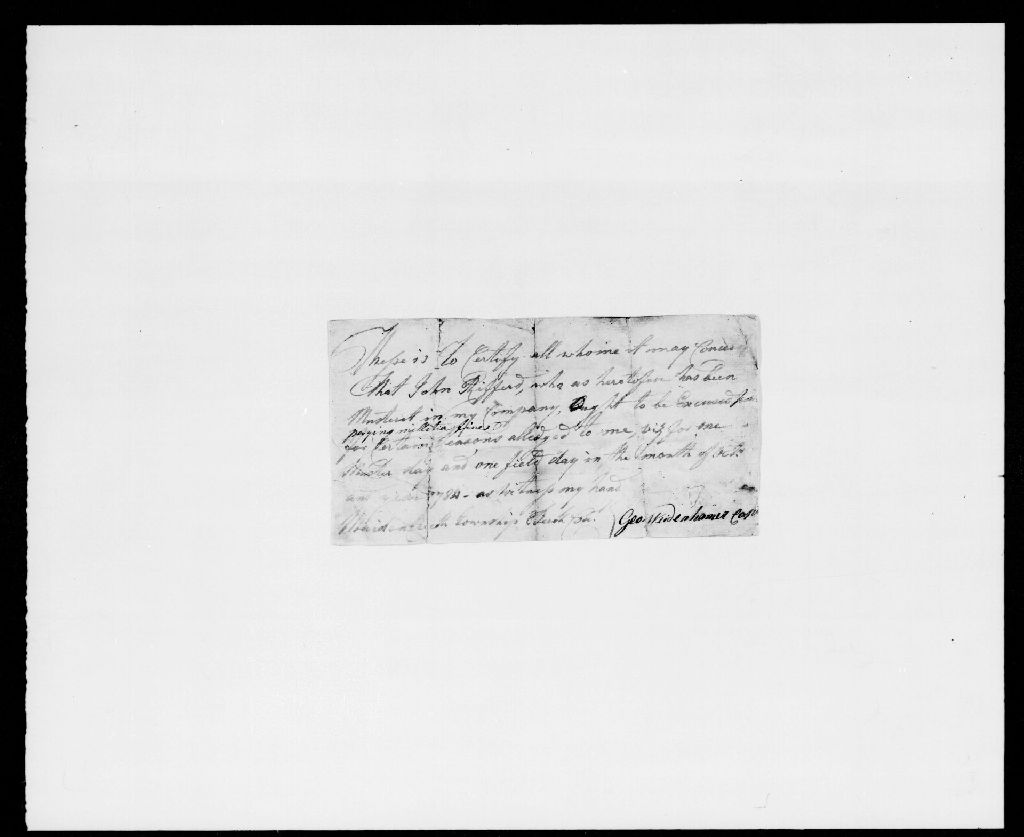 These is To Certify all whome it may Concern
That John Rifferd, who as heretofore has been
Mustered in my Company, Ought to be Excused for
paying militia fines
for Certain Reasons alledged to me, viz for one
Muster day and one field day in the month of Octr
and year 1784 - as witness my hand
township
Geo. Widenhamer Capt